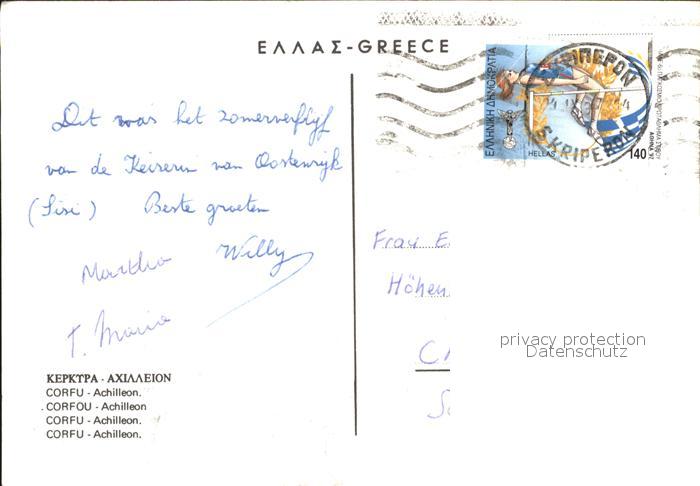 ΕΛΛΑΣ-GREECE
Dit was het zomerverblyf
van de Keizerin van Oostenrijk
(Sisi) Beste groeten
Willy
Martha
T. Maria
ΚΕΡΚΤΡΑ - ΑΧΙΛΛΕΙΟΝ
CORFU - Achilleon.
CORFOU - Achilleon
CORFU - Achilleon.
CORFU - Achilleon.
ΕΛΛΗΝΙΚΗ ΔΗΜΟΚΡΑΤΙΑ
HELLAS
140
ΑΘΗΝΑ 97
SKRIPERON
Frau E
Höhen
privacy protection
Datenschutz